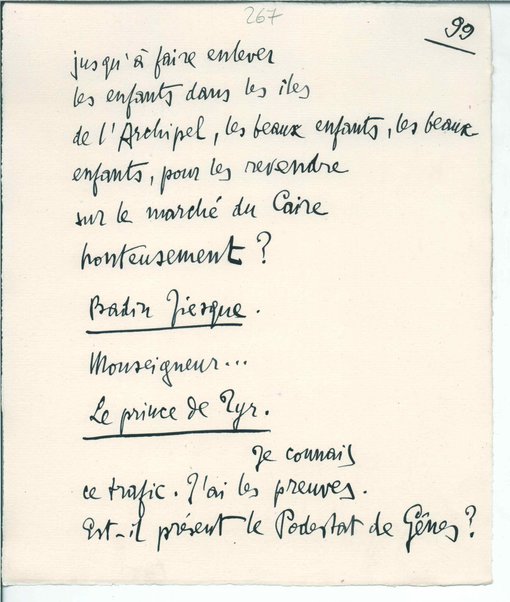 267
99
jusqu'à faire enlever
les enfants dans les îles
de l'Archipel, les beaux enfants, les beaux
enfants, pour les revendre
sur le marché du Caire
honteusement ?
Badin Fiesque.
Monseigneur...
Le prince de Tyr.
Je connais
ce trafic. J'ai les preuves.
Est-il présent le Podestat de Gênes ?